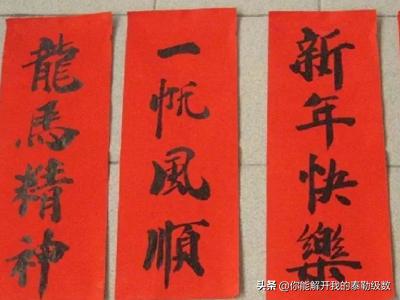 龍馬精神
一帆風順
新年快樂
头条 @你能解开我的泰勒级数